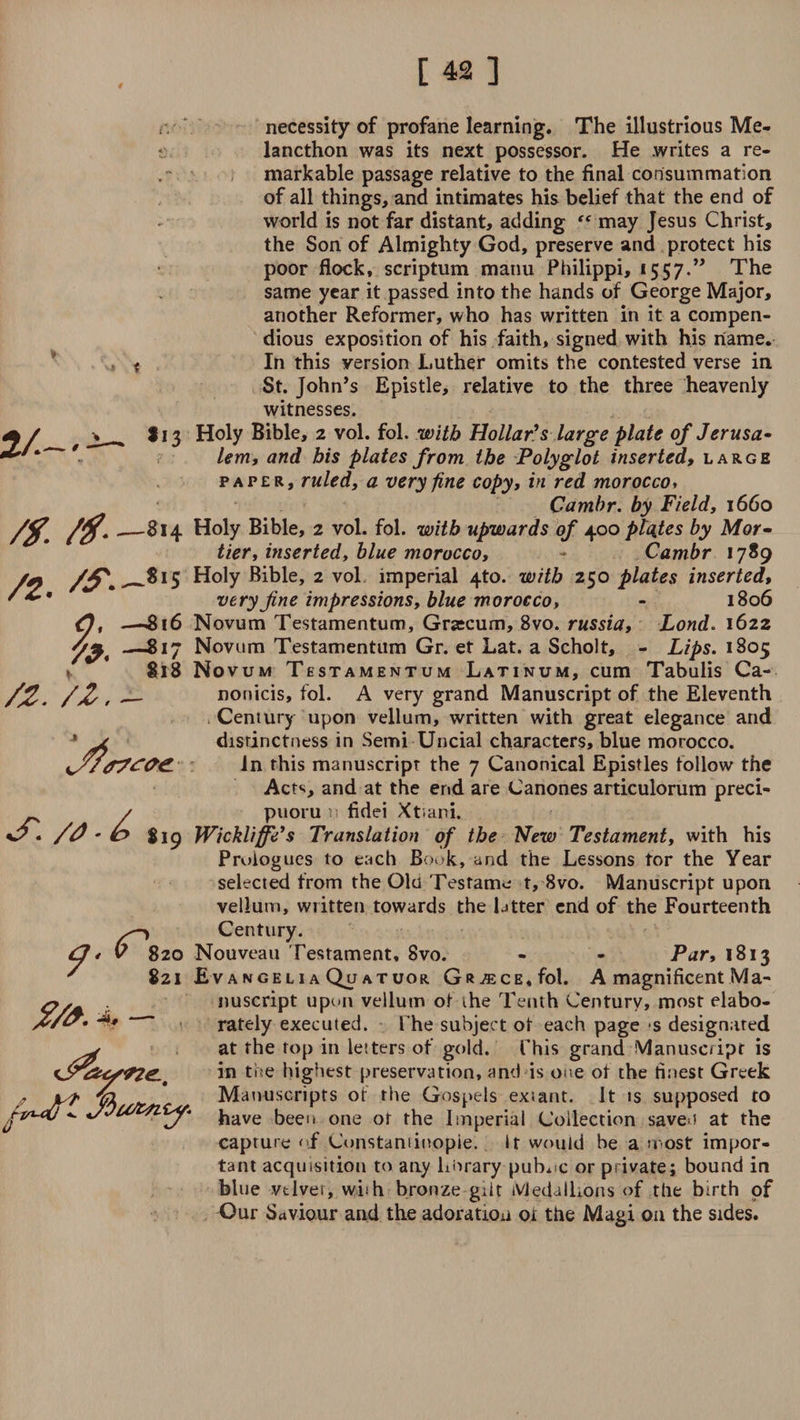 [ 42 ]
necessity of profane learning. The illustrious Me-
lancthon was its next possessor. He writes a re-
markable passage relative to the final consummation
of all things, and intimates his belief that the end of
world is not far distant, adding “may Jesus Christ,
the Son of Almighty God, preserve and protect his
poor flock, scriptum manu Philippi, 1557.” The
same year it passed into the hands of George Major,
another Reformer, who has written in it a compen-
dious exposition of his faith, signed with his name.
In this version Luther omits the contested verse in
St. John's Epistle, relative to the three heavenly
witnesses.
21. — . — 813 Holy Bible, 2 vol. fol. with Hollar's large plate of Jerusa-
lem, and his plates from the Polyglot inserted, LARGE
PAPER, ruled, a very fine copy, in red morocco,
Cambr. by Field, 1660
18. 18. — 814 Holy Bible, 2 vol. fol. with upwards of 400 plates by Mor-
tier, inserted, blue morocco, - Cambr. 1789
12. 15. — 815 Holy Bible, 2 vol. imperial 4to. with 250 plates inserted,
very fine impressions, blue morocco, - 1806
9, — 816 Novum Testamentum, Græcum, 8vo. russia, Lond. 1622
13, — 817 Novum Testamentum Gr. et Lat. a Scholt, - Lips. 1805
818 NOVUM TESTAMENTUM LATINUM, cum Tabulis Ca-
12. 12. — nonicis, fol. A very grand Manuscript of the Eleventh
Century upon vellum, written with great elegance and
distinctness in Semi-Uncial characters, blue morocco.
Roscoe In this manuscript the 7 Canonical Epistles follow the
Acts, and at the end are Canones articulorum preci-
puoru fidei Xtiani.
5. 10 - 6 819 Wickliffe's Translation of the New Testament, with his
Prologues to each Book, and the Lessons for the Year
selected from the Old Testament, 8vo. Manuscript upon
vellum, written towards the latter end of the Fourteenth
Century.
9. 6 820 Nouveau Testament, 8vo. - - Par, 1813
821 EVANGELIA QUATUOR GRÆCE, fol. A magnificent Ma-
nuscript upon vellum of the Tenth Century, most elabo-
210. — rately executed. The subject of each page is designated
at the top in letters of gold. This grand Manuscript is
Payne, in the highest preservation, and is one of the finest Greek
Manuscripts of the Gospels extant. It is supposed to
for Dr Burney. have been one of the Imperial Collection saved at the
capture of Constantinople. It would be a most impor-
tant acquisition to any library public or private; bound in
blue velvet, with bronze-gilt Medallions of the birth of
Our Saviour and the adoration of the Magi on the sides.